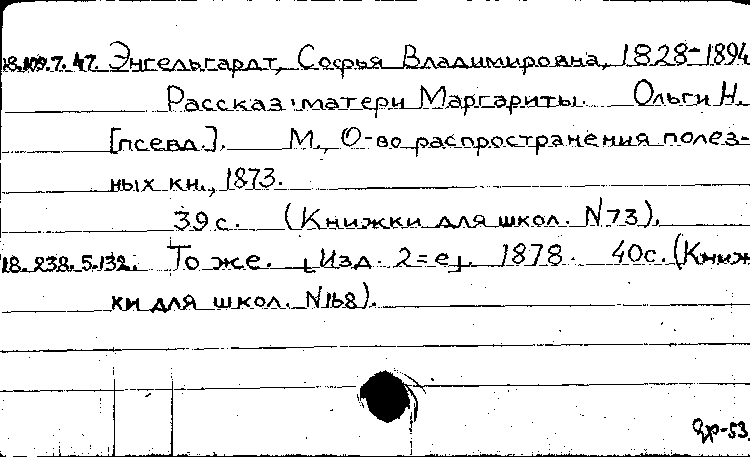 18.109.7.47. Энгельгардт, Софья Владимировна, 1828-1894
Рассказ матери Маргариты. Ольги Н.
[псевд.]. М., О-во распространения полез-
ных кн., 1873.
39 с. (Книжки для школ. N 73).
18.238.5.132. То же. [Изд. 2=е]. 1878. 40 с. (Книж
ки для школ. N 168).